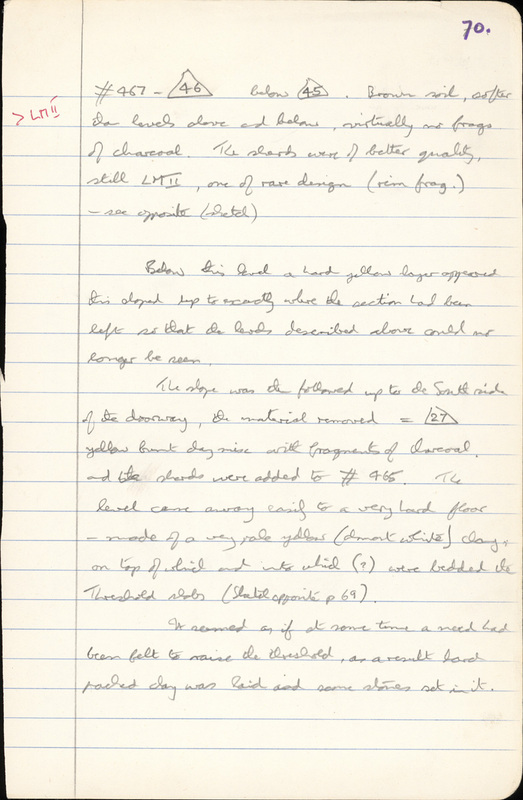 70.
> LM II
# 467 - 46 below 45. Brown soil, softer
than levels above and below, virtually no frags
of charcoal. The sherds were of better quality,
still LM II, one of rare design (rim frag.)
- see opposite (sketch)
Below this level a hard yellow layer appeared
this sloped up to exactly where the section had been
left so that the levels described above could no
longer be seen.
The slope was then followed up to the South side
of the doorway, the material removed = 27
yellow burnt clay mixe with fragments of charcoal.
and the sherds were added to # 465. The
level came away easily to a very hard floor
- made of a very pale yellow (almost white) clay,
on top of which and into which (?) were bedded the
Threshold slabs (Sketch opposite p 69).
It seemed as if at some time a need had
been felt to raise the threshold, as a result hard
packed clay was laid and some stones set in it.